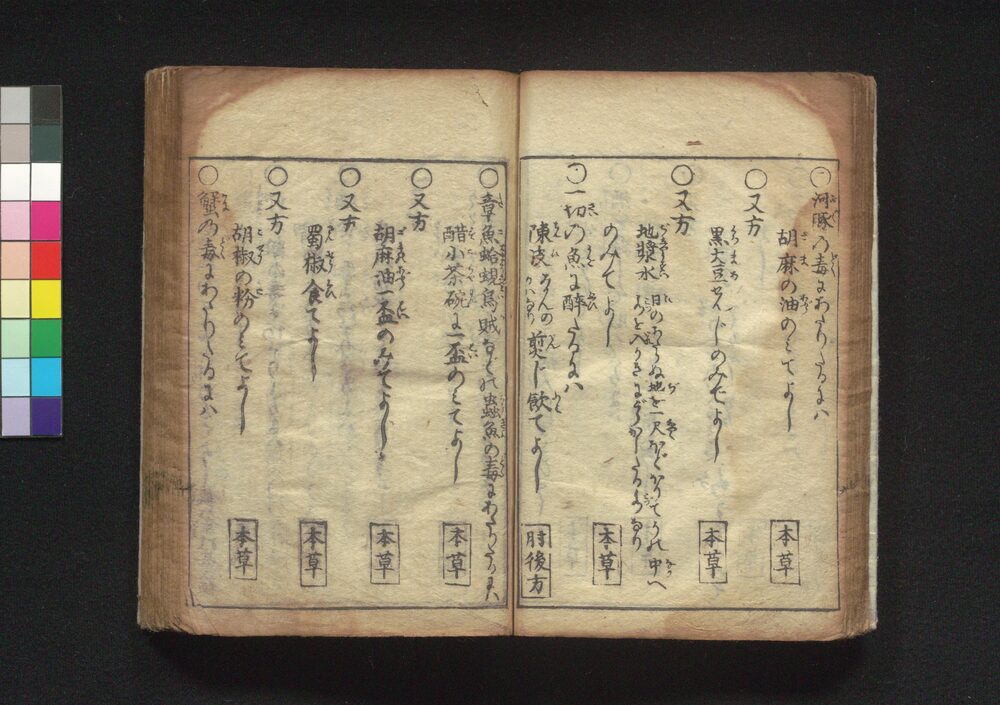 ○河豚の毒にあたりたるには
胡麻の油のみてよし 本草
○又方
黒大豆せんじのみてよし 本草
○又方
地漿水 日のあたらぬ地を一尺ほどほりてその中へ
水を入かきまぜすましたる水なり
のみてよし 本草
○一切の魚に酔たるには
陳皮 煎じ飲てよし 肘後方
○章魚蛤蜆烏賊などの蟲魚の毒にあたりたるには
醋小茶碗に一盃のみてよし 本草
○又方
胡麻油一盃のみてよし 本草
○又方
蜀椒食てよし 本草
○又方
胡椒の粉のみてよし 本草
○蟹の毒にあたりたるには